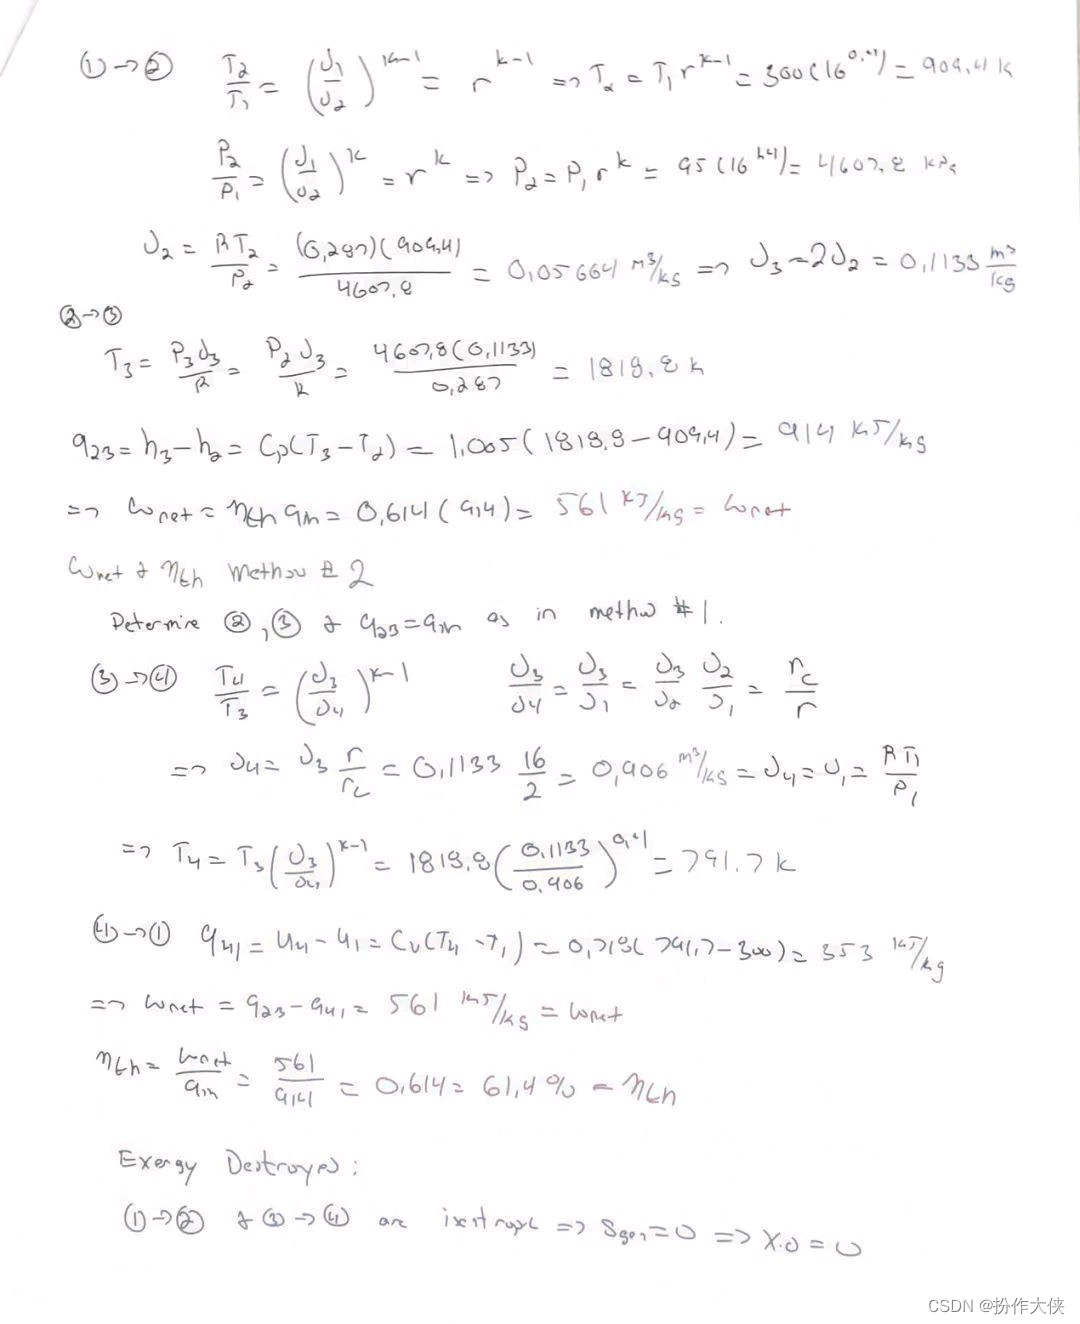 ① → ② T₂/T₁ = (υ₁/υ₂)^(k-1) = r^(k-1) => T₂ = T₁ r^(k-1) = 300(16^0.4) = 909,4 K
P₂/P₁ = (υ₁/υ₂)^k = r^k => P₂ = P₁ r^k = 95(16^1.4) = 4607,8 kPa
υ₂ = RT₂/P₂ = (0,287)(909,4)/4607,8 = 0,05664 m³/kg => υ₃ = 2υ₂ = 0,1133 m³/kg
② → ③
T₃ = P₃υ₃/R = P₂υ₃/R = 4607,8(0,1133)/0,287 = 1818,8 K
q₂₃ = h₃ - h₂ = Cp(T₃ - T₂) = 1,005(1818,8 - 909,4) = 914 kJ/kg
=> ωnet = ηth qin = 0,614(914) = 561 kJ/kg = ωnet
ωnet & ηth Method # 2
Determine ②, ③ & q₂₃ = qin as in method #1.
③ → ④ T₄/T₃ = (υ₃/υ₄)^(k-1) υ₃/υ₄ = υ₃/υ₁ = υ₃/υ₂ υ₂/υ₁ = rc/r
=> υ₄ = υ₃ r/rc = 0,1133 16/2 = 0,906 m³/kg = υ₄ = υ₁ = RT₁/P₁
=> T₄ = T₃(υ₃/υ₄)^(k-1) = 1818,8(0,1133/0,906)^0,4 = 791,7 K
④ → ① q₄₁ = u₄ - u₁ = Cv(T₄ - T₁) = 0,718(791,7 - 300) = 353 kJ/kg
=> ωnet = q₂₃ - q₄₁ = 561 kJ/kg = ωnet
ηth = ωnet/qin = 561/914 = 0,614 = 61,4 % = ηth
Exergy Destroyed:
① → ② & ③ → ④ are isentropic => Sgen = 0 => X.D = 0
CSDN @扮作大侠